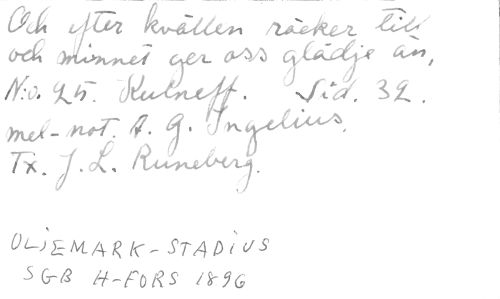 Och efter kvällen räcker till
och minnet ger oss glädje än,
N:o. 25. Kulneff. Sid. 32.
mel-not. A. G. Ingelius.
Tx. J. L. Runeberg.
OLJEMARK-STADIUS
SGB H-FORS 1896